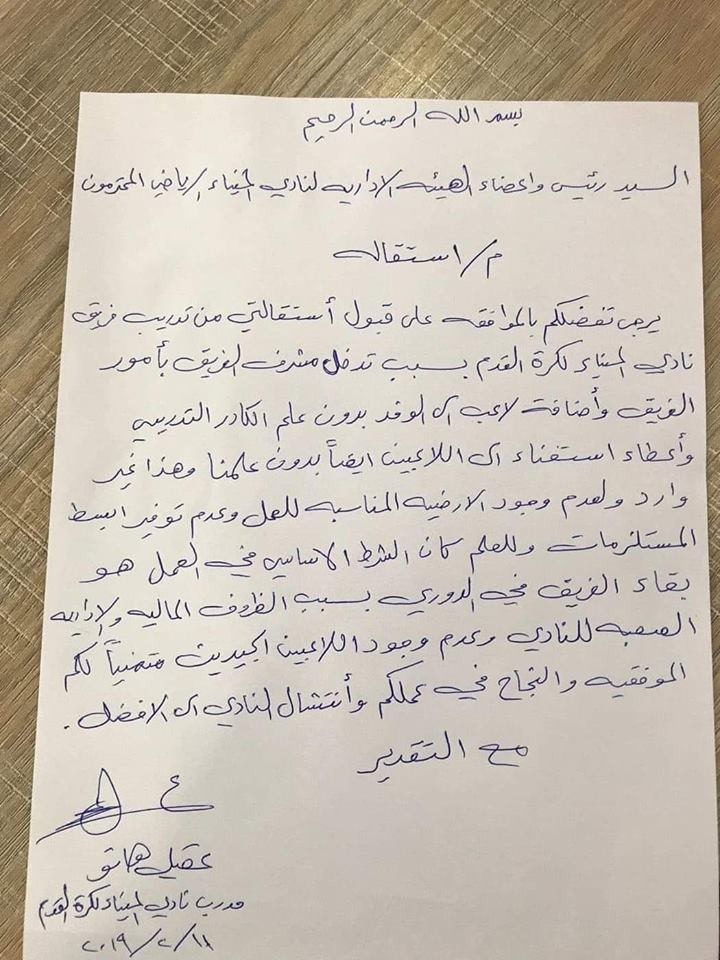 بسم الله الرحمن الرحيم
السيد رئيس واعضاء الهيئه الاداريه لنادي الميناء الرياضي المحترمون
م/ استقاله
يرجى تفضلكم بالموافقه على قبول أستقالتي من تدريب فريق
نادي الميناء لكرة القدم بسبب تدخل مشرف الفريق بأمور
الفريق وأضافة لاعب الى الوفد بدون علم الكادر التدريبي
وأعطاء استغناء الى اللاعبين ايضاً بدون علمنا وهذا غير
وارد ولعدم وجود الارضيه المناسبه للعمل وعدم توفير ابسط
المستلزمات وللعلم كان الشرط الاساسي في العمل هو
بقاء الفريق في الدوري بسبب الظروف الماليه والاداريه
الصعبه للنادي وعدم وجود اللاعبين الجيدين متمنياً لكم
الموفقيه والنجاح في عملكم وأنتشال النادي الى الافضل.
مع التقدير
عقيل هاتو
مدرب نادي الميناء لكرة القدم
٢٠١٩/٢/١٨